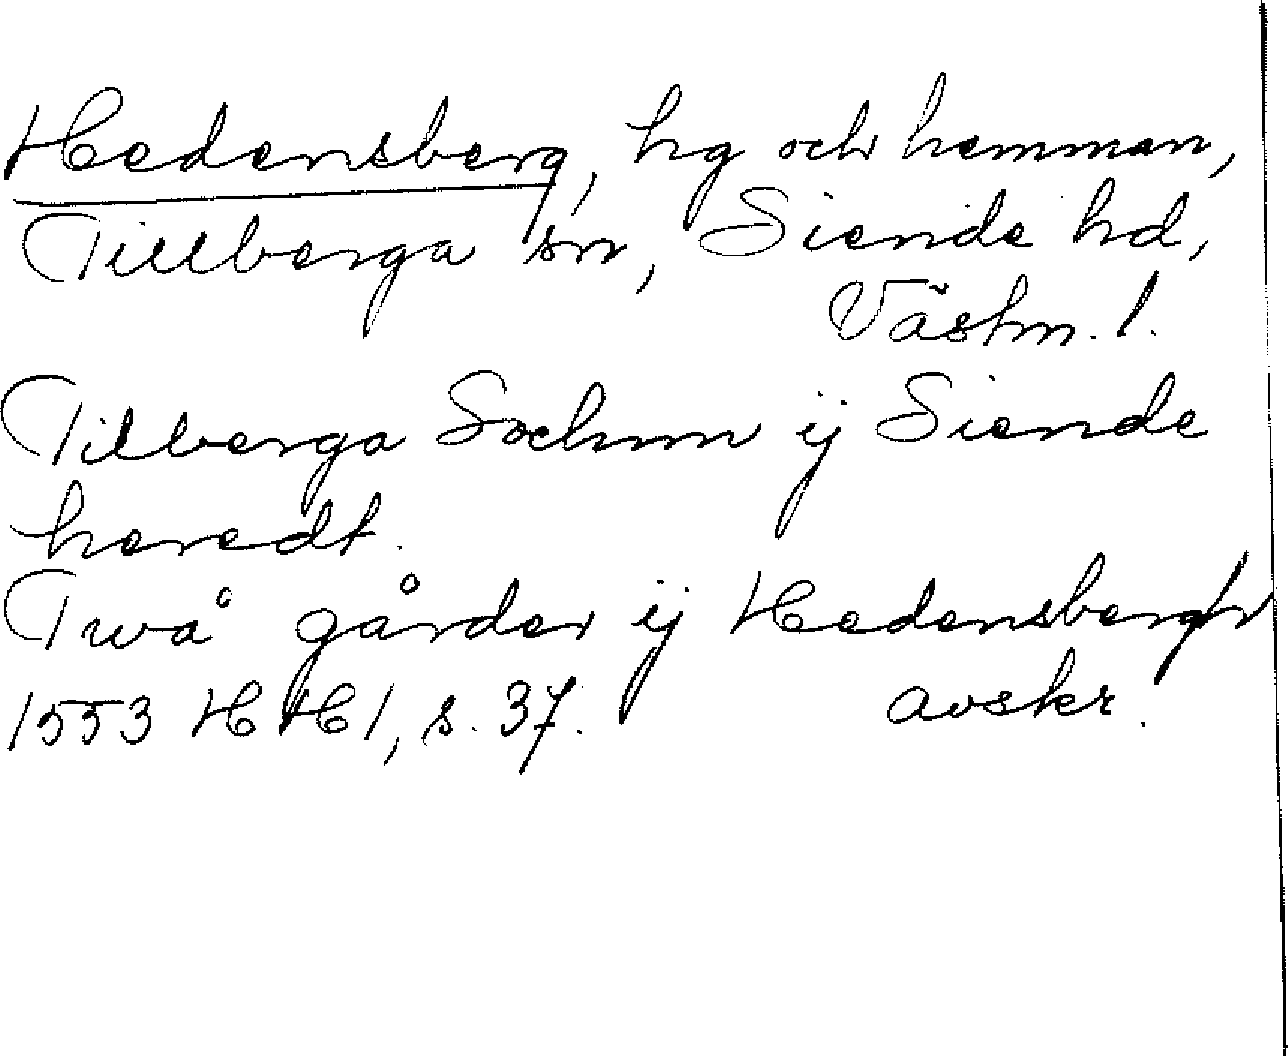 Hedensberg, hg och hemman,
Tillberga sn, Siende hd,
Västm. l.
Tilberga Sochnn ij Siende
heredt.
Twå gårder ij Hedensbergh
1553 HH 1, s. 37. avskr.